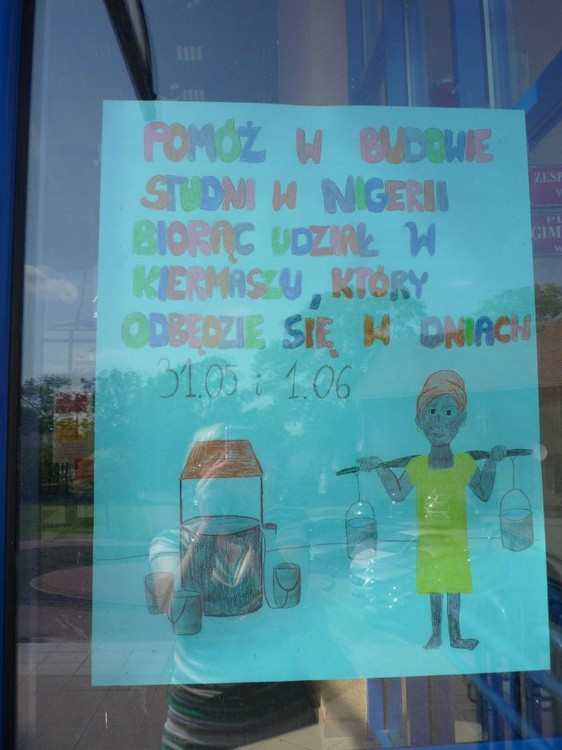 POMÓŻ W BUDOWIE
STUDNI W NIGERII
BIORĄC UDZIAŁ W
KIERMASZU, KTÓRY
ODBĘDZIE SIĘ W DNIACH
31.05 i 1.06